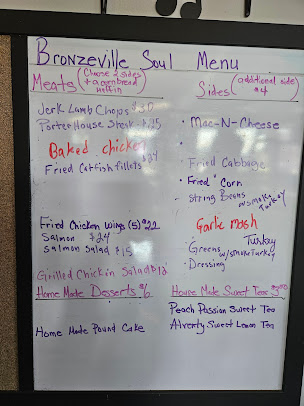 Bronzeville Soul Menu
Meats (Choose 2 sides
+ a cornbread
muffin)
Jerk Lamb Chops $30
Porter House Steak $35
Baked chicken
Fried Catfish fillets $24
Fried Chicken Wings (5) $22
Salmon $24
Salmon Salad $15
Grilled Chickin Salad $12
Home Made Desserts $6
Home Made Pound Cake
Sides (additional side
$4)
• Mac-N-Cheese
• Fried Cabbage
• Fried Corn
• String Beans
w/smoke
Turkey
Garlic mash
• Greens Turkey
w/smoke Turkey
• Dressing
House Made Sweet Teas
Peach Passion Sweet Tea
Sweet Lemon Tea